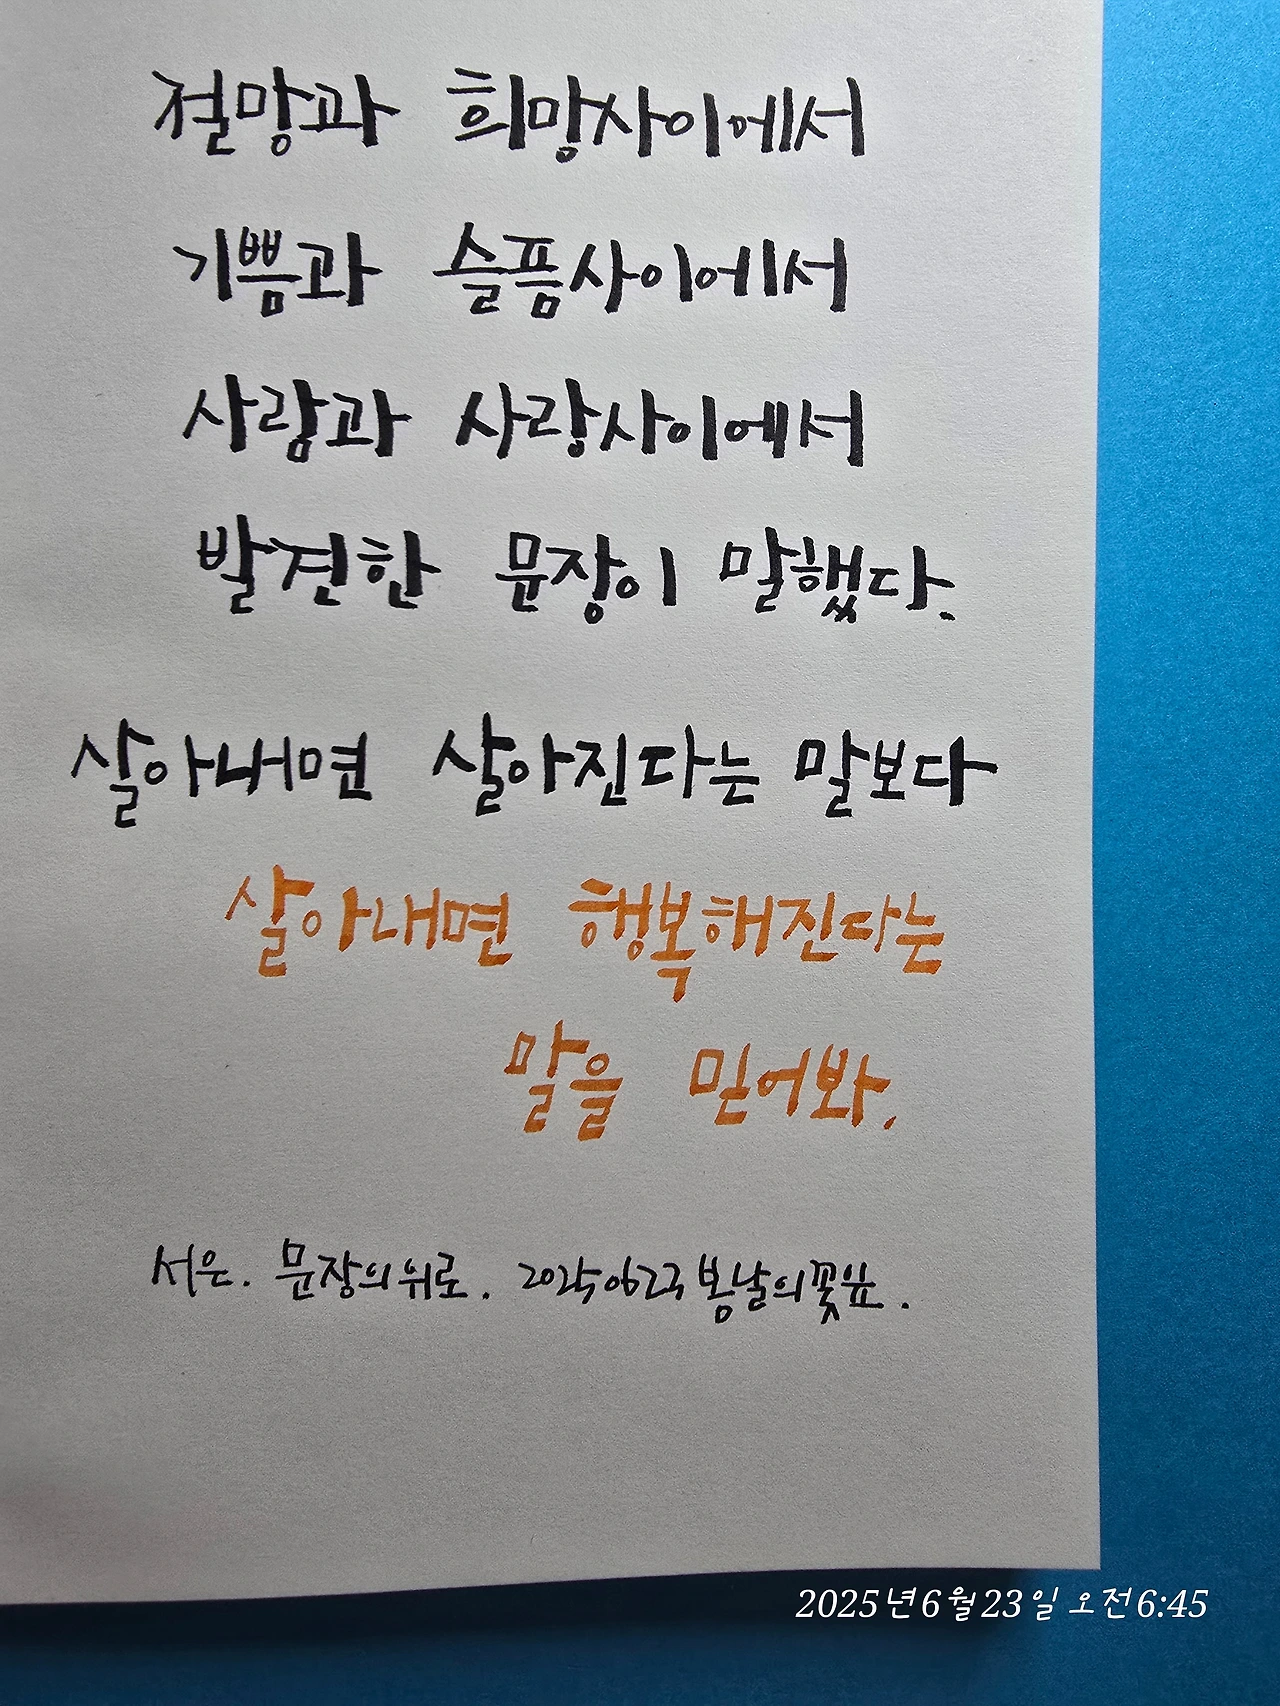 절망과 희망사이에서
기쁨과 슬픔사이에서
사람과 사랑사이에서
발견한 문장이 말했다.
살아내면 살아진다는 말보다
살아내면 행복해진다는
말을 믿어봐.
서은. 문장의위로. 20250623 봄날의꽃잎.
2025년 6월 23일 오전 6:45